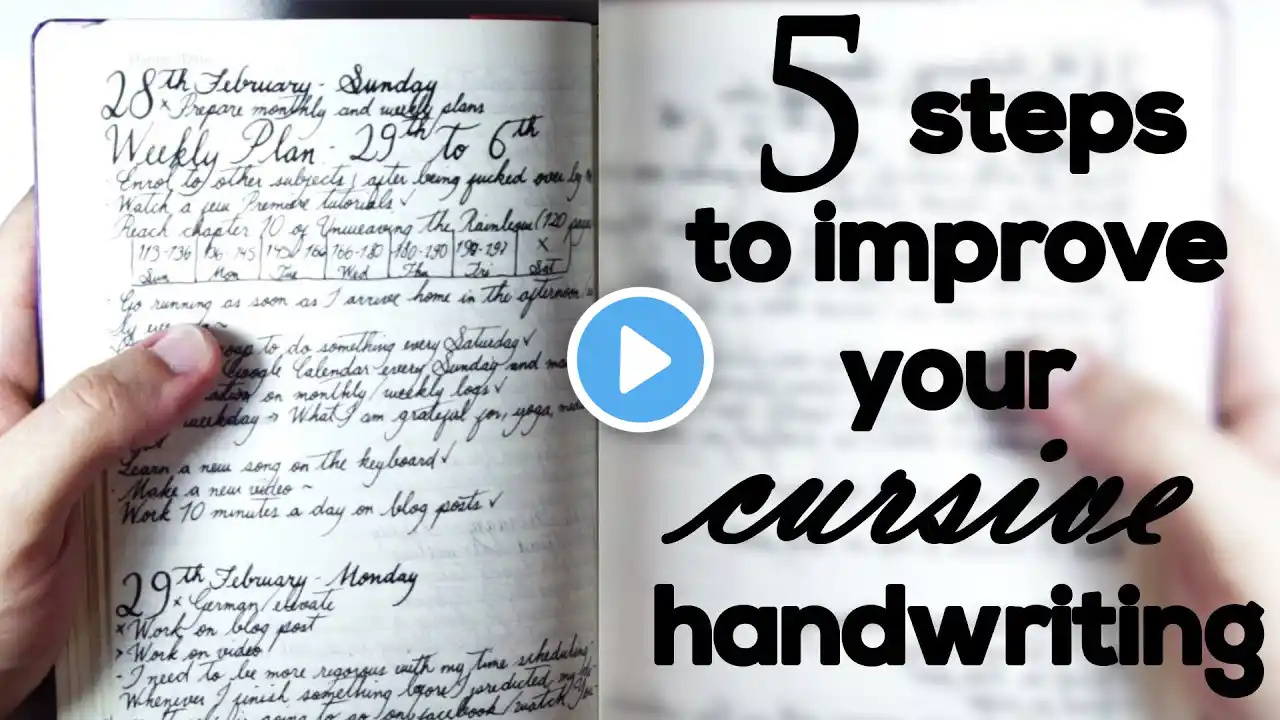 28th February - Sunday
× Prepare monthly and weekly plans
Weekly Plan - 29th to 6th
· Enrol to other subjects, after being fucked over by
· Watch a few Premiere tutorials ✓
Reach chapter 10 of Unweaving the Rainbow (120 pages
113-136 136-145 145-166 166-180 180-190 190-297 ×
Sun Mon Tue Wed Thu Fri Sat
· Go running as soon as I arrive home in the afternoon/
to do something every Saturday ✓
Elevate Calendar every Sunday and
on monthly/weekly logs ✓
weekday → What I am grateful for, yoga,
Learn a new song on the keyboard ✓
· Make a new video ~
Work 10 minutes a day on blog posts ✓
29th February - Monday
× German/elevate
× Work on blog post
> Work on video
- I need to be more rigorous with my time scheduling.
Whenever I finish something before I predicted
going to go on facebook/watch
5 steps
to improve
your
cursive
handwriting